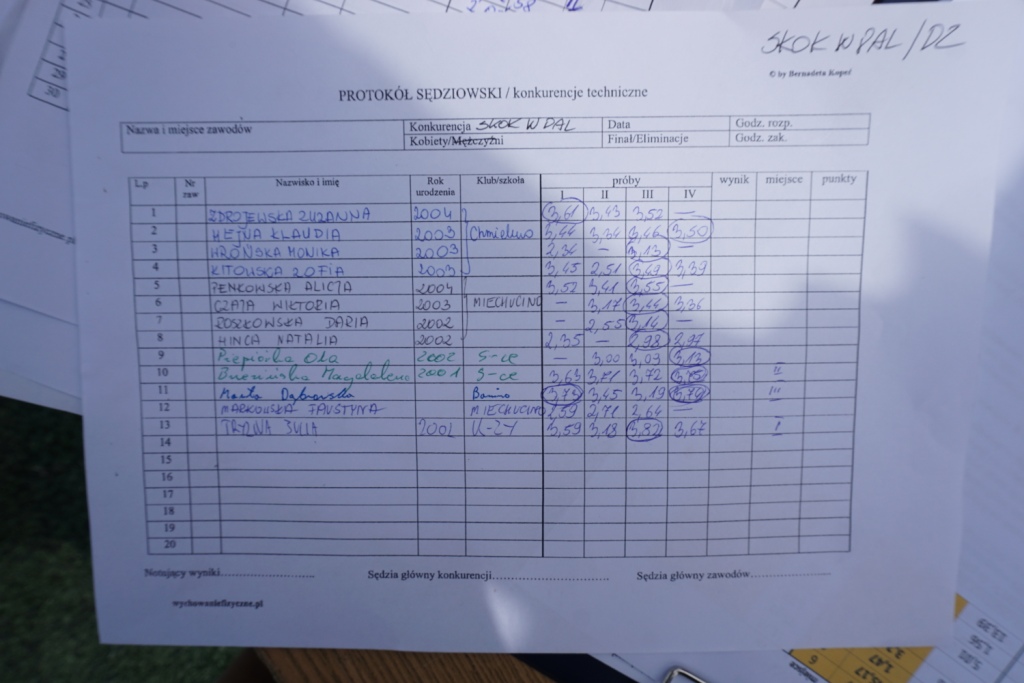 SKOK W DAL / DZ
© by Bernadeta Kopeć
PROTOKÓŁ SĘDZIOWSKI / konkurencje techniczne
Nazwa i miejsce zawodów Konkurencja SKOK W DAL Data Godz. rozp.
Kobiety/Mężczyźni Finał/Eliminacje Godz. zak.
L.p Nr zaw Nazwisko i imię Rok urodzenia Klub/szkoła próby wynik miejsce punkty
I II III IV
1 ZDROJEWSKA ZUZANNA 2004 3,61 3,43 3,52 —
2 HEJNA KLAUDIA 2003 Chmielno 3,44 3,34 3,46 3,50
3 HROŃSKA MONIKA 2003 2,34 — 3,13
4 KITOWSKA ZOFIA 2003 3,45 2,51 3,39
5 PENKOWSKA ALICJA 2004 3,52 3,41 3,55 —
6 CZAJA WIKTORIA 2003 MIECHUCINO — 3,17 3,44 3,36
7 ROSZKOWSKA DARIA 2002 — 2,55 3,14 —
8 HINCA NATALIA 2002 2,35 — 2,98 2,97
9 Piepiórka Ola 2002 S-ce — 3,00 3,09 3,13
10 Magdalena 2001 S-ce 3,63 3,71 3,72 3,75 II
11 Marta Dąbrowska Banino 3,73 3,45 3,19 III
12 MARKOWSKA FAUSTYNA MIECHUCINO 2,59 2,71 2,64 —
13 JULIA K-ZY 3,59 3,18 3,82 3,67 I
14
15
16
17
18
19
20
Notujący wyniki Sędzia główny konkurencji Sędzia główny zawodów
wychowaniefizyczne.pl